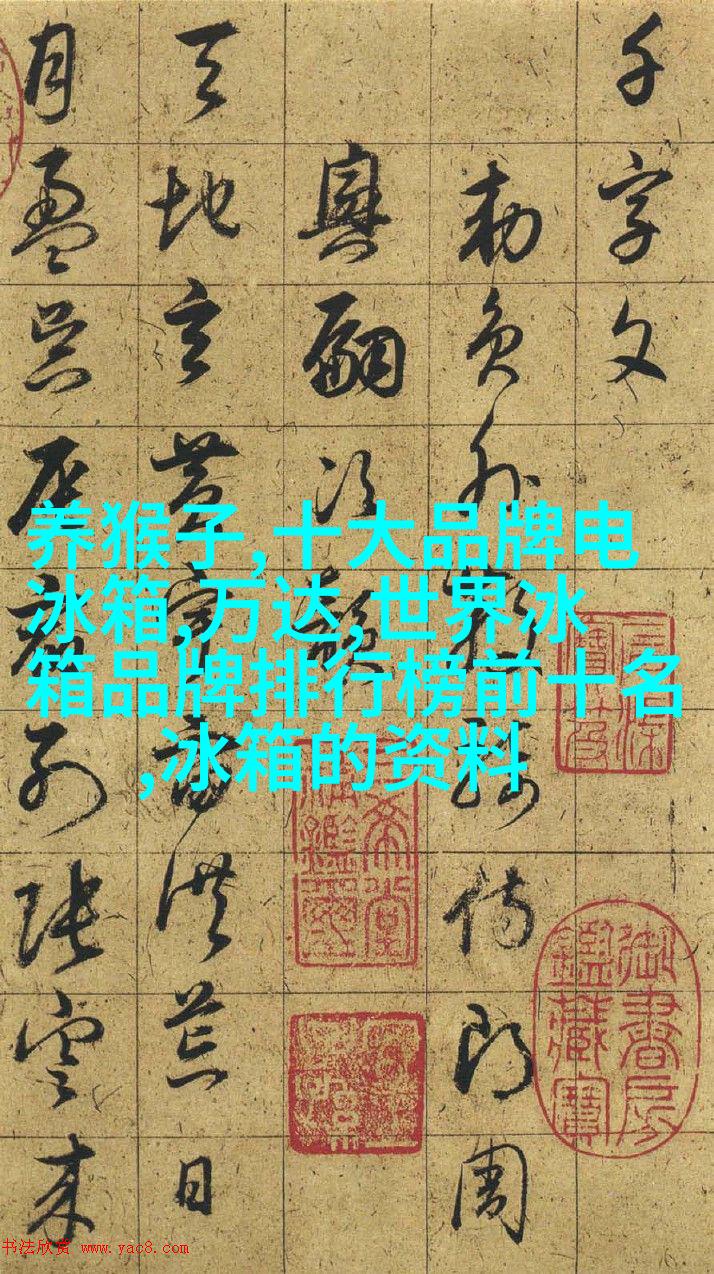 千字文
勅員外散騎侍郎周
興嗣次韻
天地玄黃宇宙洪荒日
月盈昃辰宿列張寒来
养猴子,十大品牌电
冰箱,万达,世界冰
箱品牌排行榜前十名
,冰箱的资料
三希堂
精鑑璽
御書房
鑑藏寶
书法欣赏 www.yac8.com